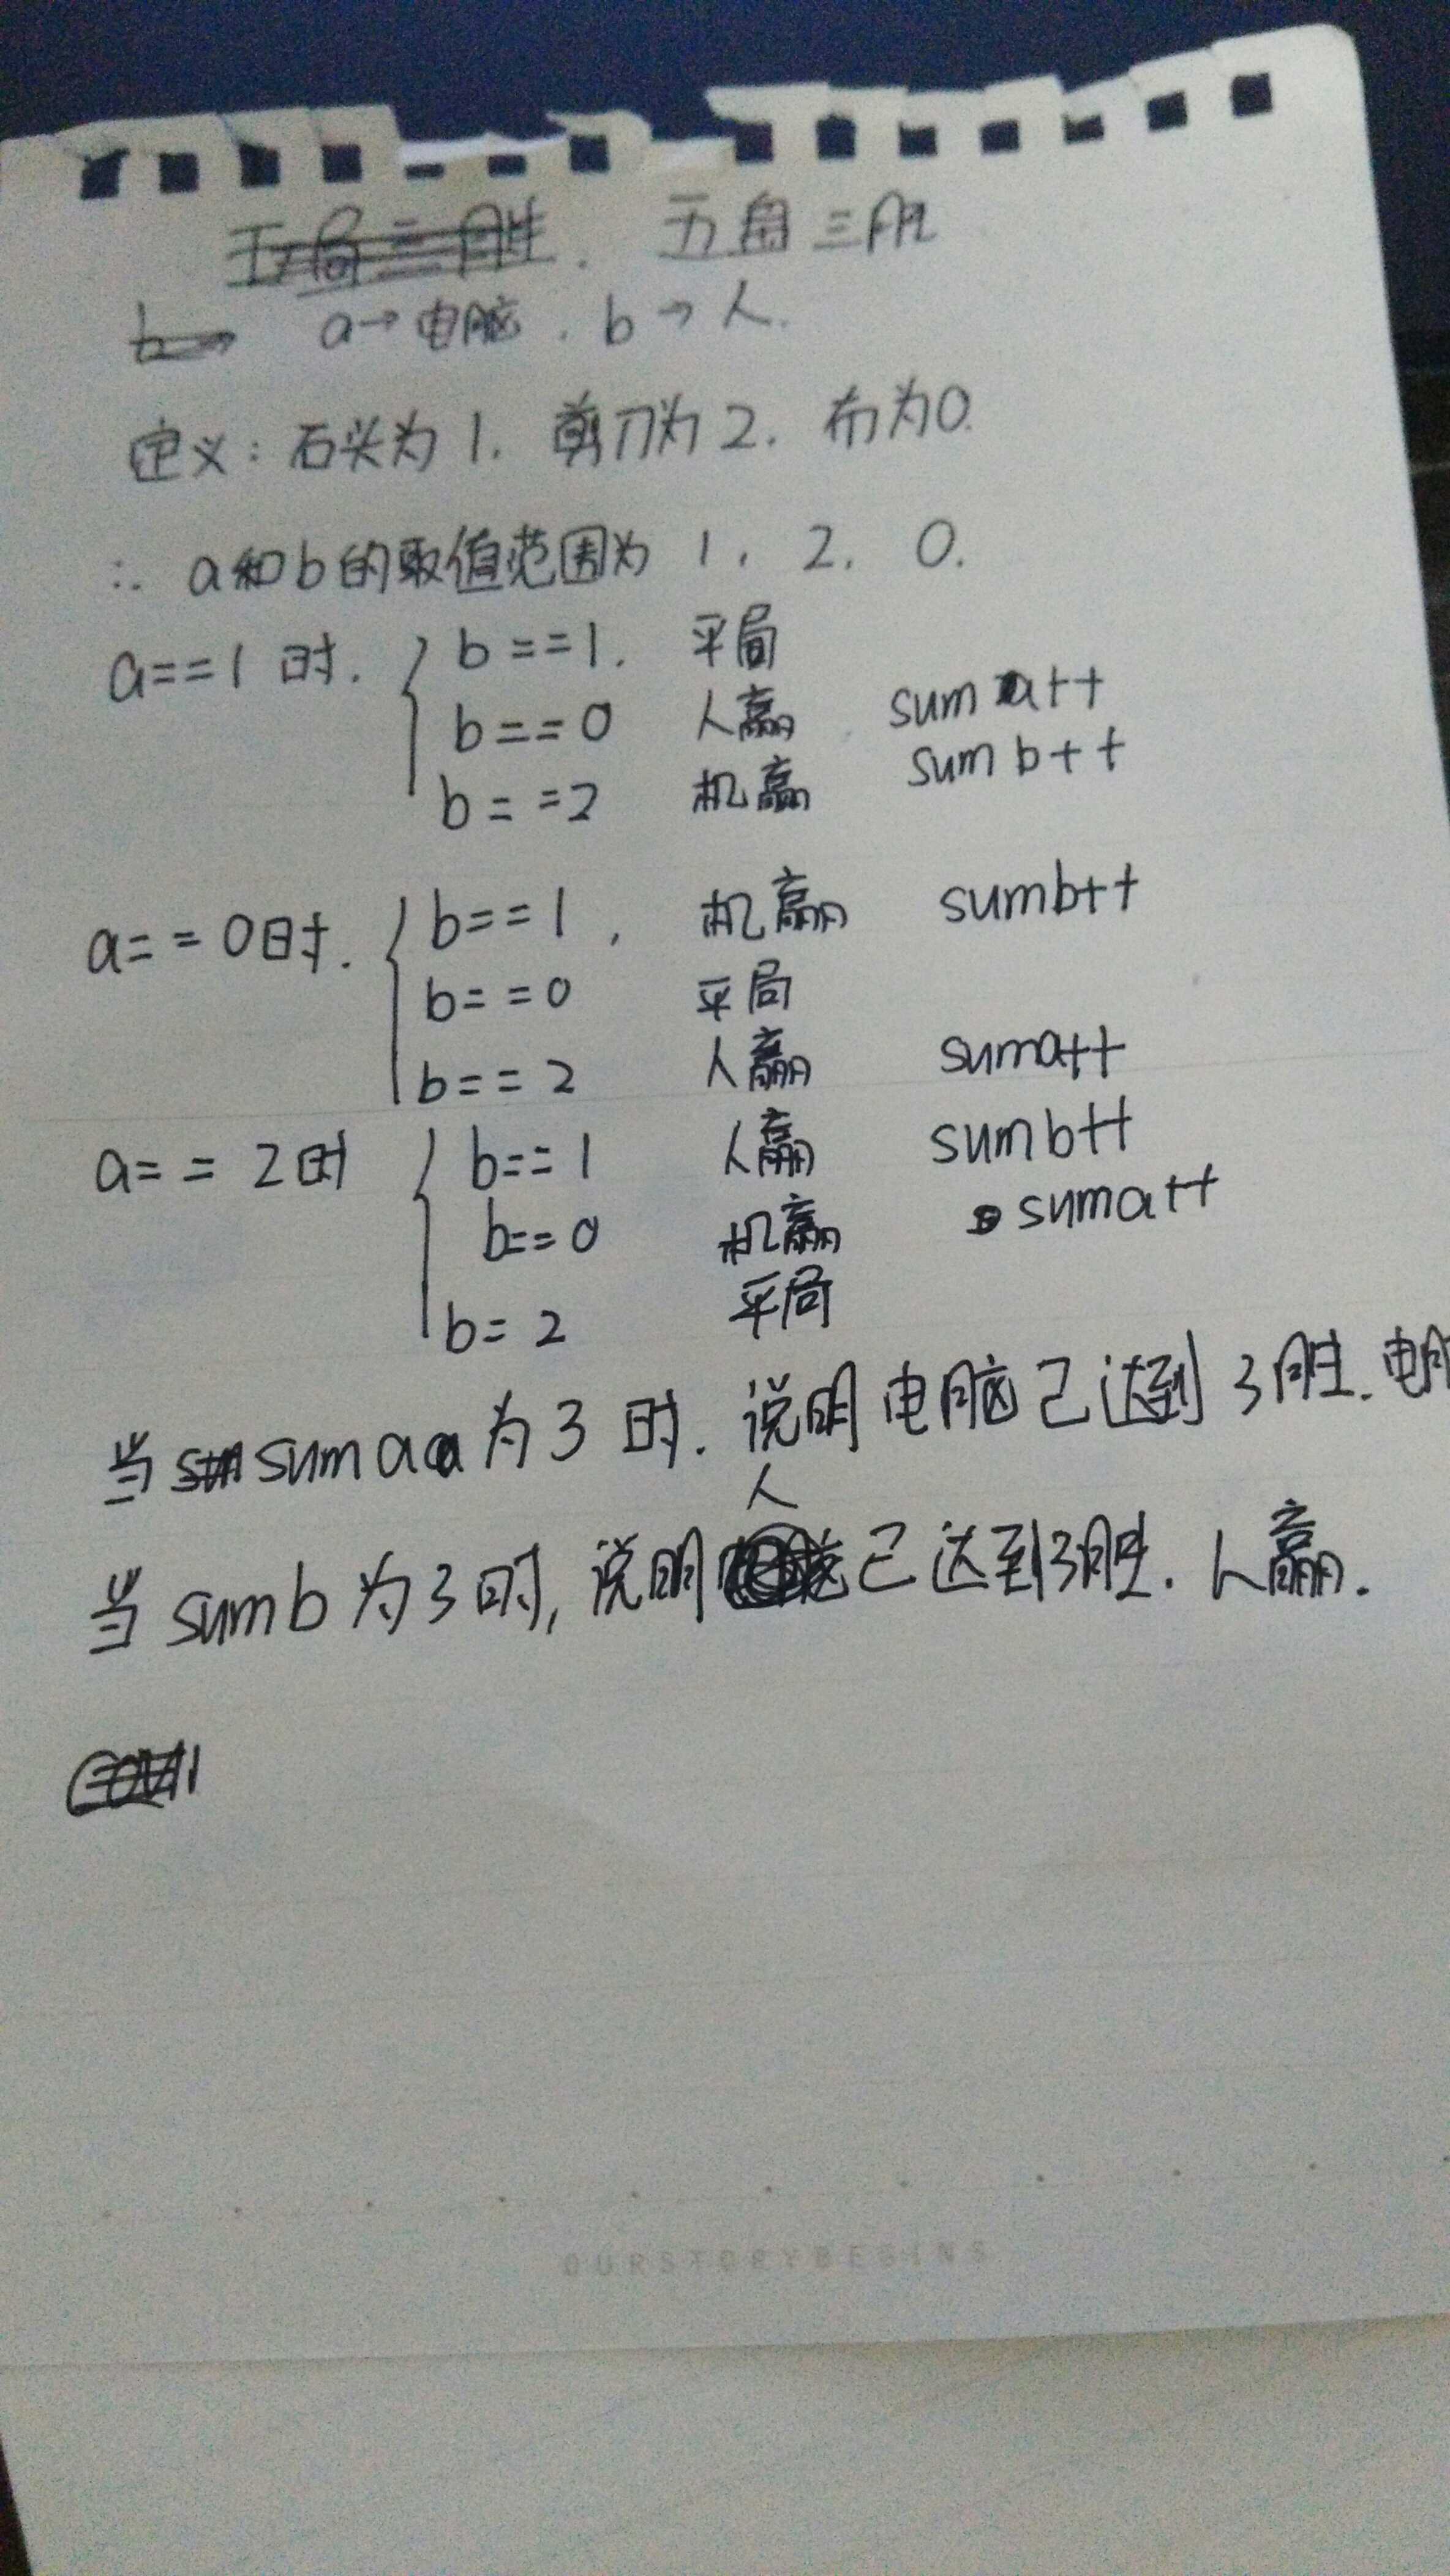 五局三胜. 五局三胜
b→ a→电脑. b→人.
定义:石头为1. 剪刀为2. 布为0.
∴ a和b的取值范围为 1, 2, 0.
a==1时. b==1. 平局
b==0 人赢 suma++
b==2 机赢 sumb++
a==0时. b==1, 机赢 sumb++
b==0 平局
b==2 人赢 suma++
a==2时 b==1 人赢 sumb++
b==0 机赢 suma++
b=2 平局
当suma为3时.说明电脑已达到3胜.电
人
当sumb为3时,说明已达到3胜.人赢.
OURSTORYBEGINS